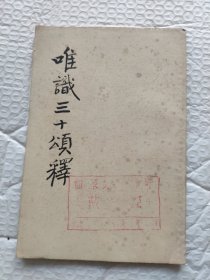 唯識三十頌釋